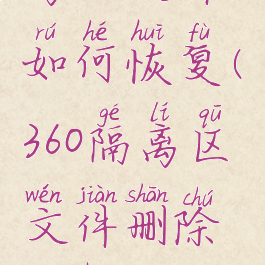 rú hé huī fù
如何恢复(
gé lí qū
360隔离区
wén jiàn shān chú
文件删除